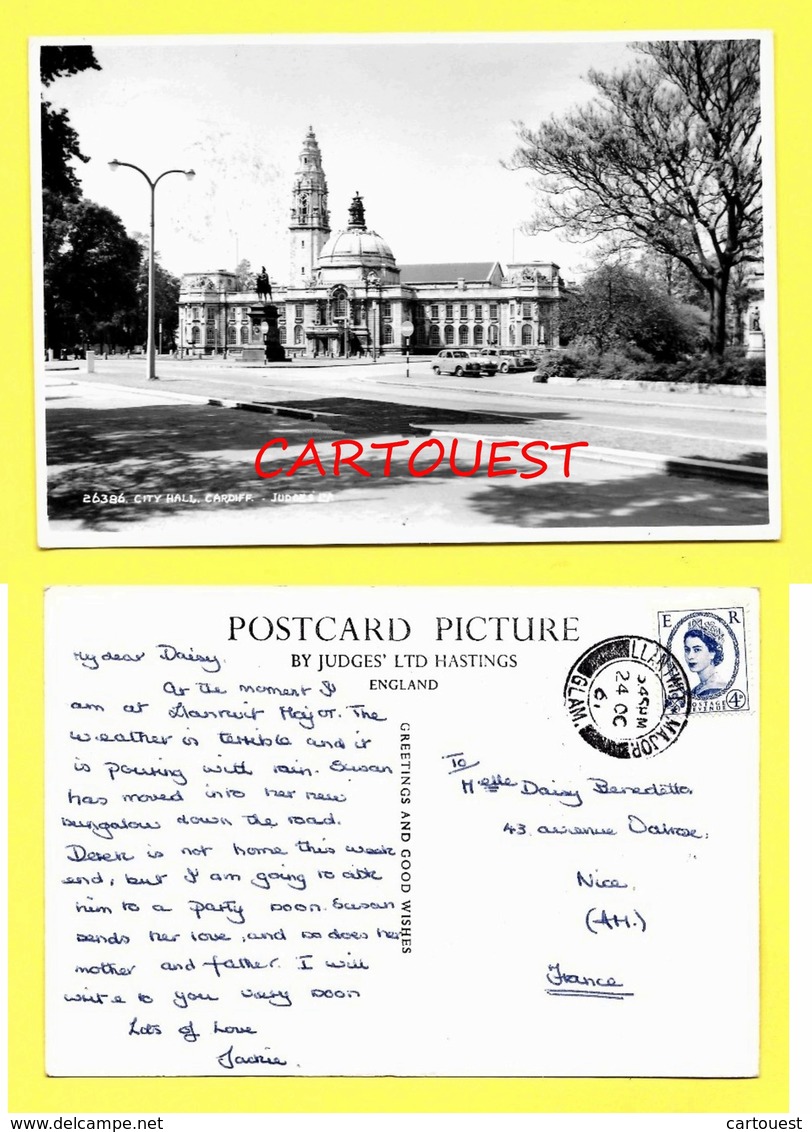 CARTOUEST
26386. CITY HALL. CARDIFF. - JUDGES LTD
POSTCARD PICTURE
BY JUDGES' LTD HASTINGS
ENGLAND
GREETINGS AND GOOD WISHES
E R
POSTAGE REVENUE
4D
LLANTWIT MAJOR
GLAM.
5 45PM
24 OC
61
My dear Daisy.
At the moment I
am at Llantwit Major. The
weather is terrible and it
is pouring with rain. Susan
has moved into her new
bungalow down the road.
Derek is not home this week
end, but I am going to ask
him to a party soon. Susan
sends her love, and so does her
mother and father. I will
write to you very soon
Lots of Love
Jackie.
To
Melle Daisy Benedetto
43. avenue
Nice.
(A.M.)
France
www.delcampe.net
cartouest